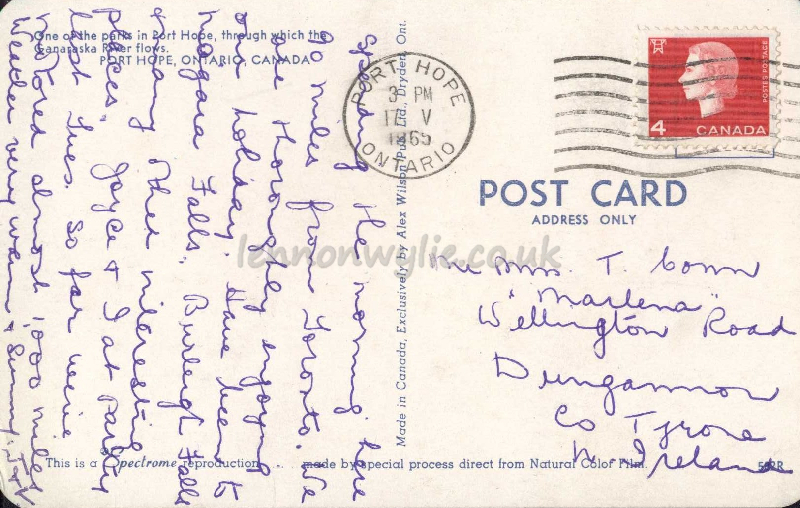 One of the parks in Port Hope, through which the
Ganaraska River flows.
PORT HOPE, ONTARIO, CANADA
Spending the morning here
70 miles from Toronto. We
are thoroughly enjoying
our holiday. Have been to
Niagara Falls, Burleigh Falls
& many other interesting
places. Joyce & I at Party
last Tues. So far we've
motored almost 1,000 miles
Weather very warm & sunny.
Made in Canada, Exclusively by Alex Wilson Pub. Ltd., Dryden, Ont.
PORT HOPE
3 PM
V
1965
ONTARIO
4
CANADA
POSTES POSTAGE
POST CARD
ADDRESS ONLY
Mrs. T. Conn
"Marlena"
Wellington Road
Dungannon
Co Tyrone
N. Ireland
This is a Spectrome reproduction . . . made by special process direct from Natural Color Film.
lennonwylie.co.uk